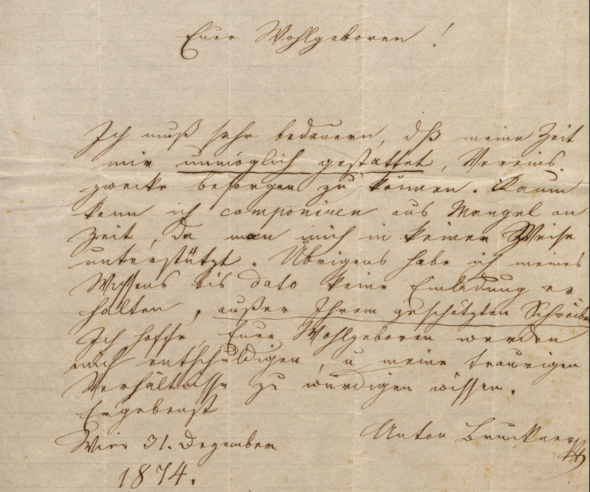 Euer Wohlgeboren!
Ich muß sehr bedauern, dß meine Zeit
mir unmöglich gestattet, Vereins
zwecke besorgen zu können. Kaum
kann ich componiren aus Mangel an
Zeit, da man mich in keiner Weise
unterstützt. Übrigens habe ich meines
Wissens bis dato keine Einladung er
halten, außer Ihrem geschätzten Schreiben
Ich hoffe Euer Wohlgeboren werden
mich entschuldigen, u meine traurigen
Verhältnisse zu würdigen wissen.
Ergebenst
Wien 31. Dezember Anton Bruckner
1874.